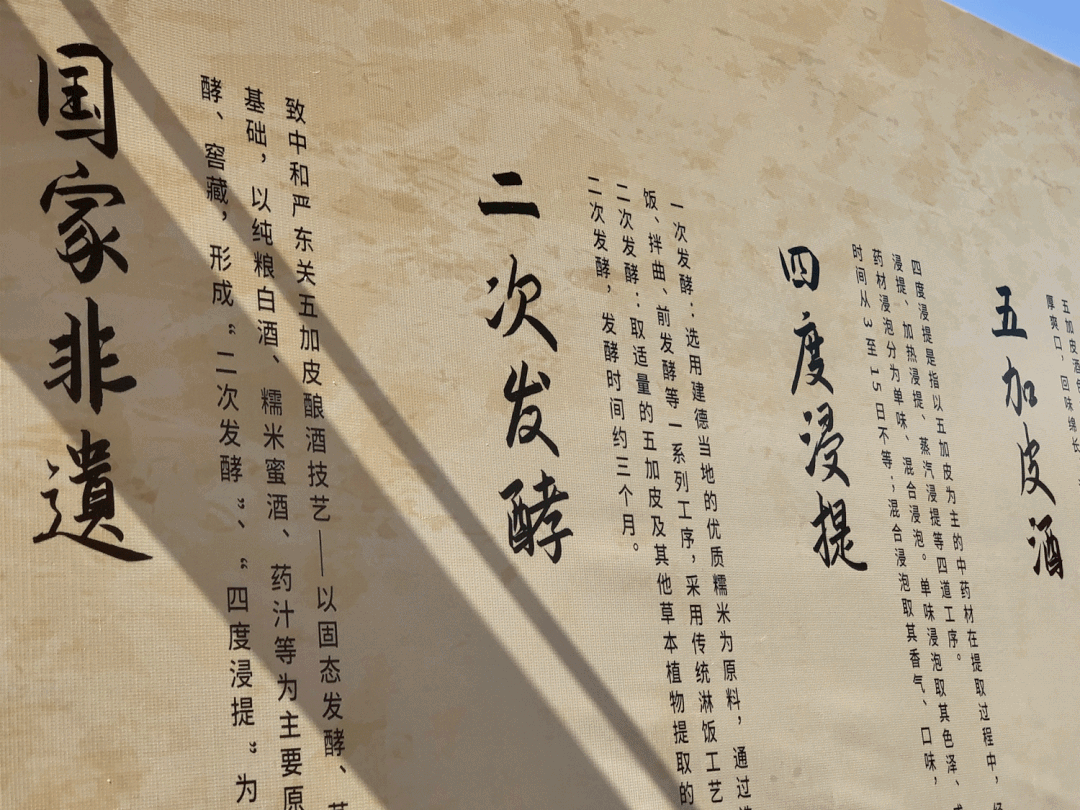 国家非遺
致中和严东关五加皮酿酒技艺——以固态发酵、
基础，以纯粮白酒、糯米蜜酒、药汁等为主要原
酵、窖藏，形成“二次发酵”、“四度浸提”为
二次发酵
一次发酵：选用建德当地的优质糯米为原料，通过
饭、拌曲、前发酵等一系列工序，采用传统淋饭工艺
二次发酵：取适量的五加皮及其他草本植物提取的
二次发酵，发酵时间约三个月。
四度浸提
四度浸提是指以五加皮为主的中药材在提取过程中，
浸提、加热浸提、蒸汽浸提等四道工序。
药材浸泡分为单味、混合浸泡。单味浸泡取其色泽、
时间从3至15日不等；混合浸泡取其香气、口味，
五加皮酒
五加皮酒
厚爽口，回味绵长